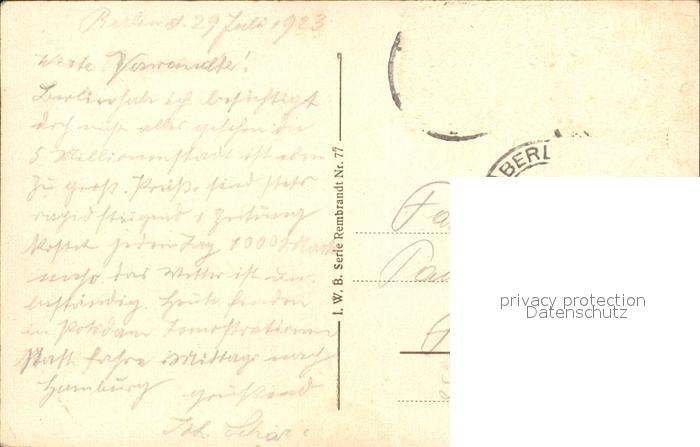 Berlin d. 29 Juli 1923
Werte Verwandte!
Berlin hab ich besichtigt
doch nicht alles gesehen die
5 Millionenstadt ist eben
zu groß. Preise sind stets
rapid steigend 1 Zeitung
kostet jeden Tag 1000 Mark
mehr das Wetter ist un-
beständig. Heute fanden
in Potsdam Demostrationen
statt fahre Mittags nach
Hamburg grüßend
Joh.
I. W. B. Serie Rembrandt Nr. 77
BERL
privacy protection
Datenschutz